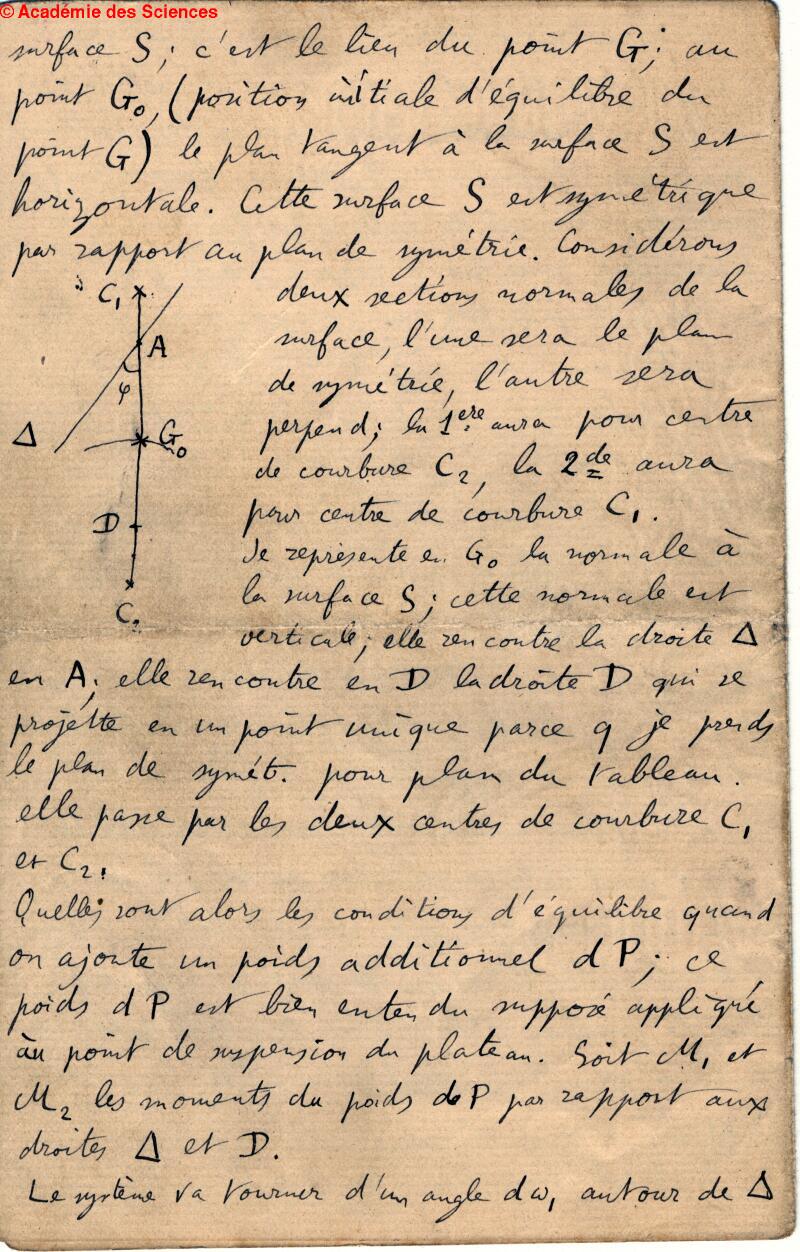 © Académie des Sciences
surface S; c'est le lieu du point G; au
point G₀, (position initiale d'équilibre du
point G) le plan tangent à la surface S est
horizontale. Cette surface S est symétrique
par rapport au plan de symétrie. Considérons
C₁
A
φ
Δ
G₀
D
C₂
deux sections normales de la
surface, l'une sera le plan
de symétrie, l'autre sera
perpend; la 1ère aura pour centre
de courbure C₂, la 2de aura
pour centre de courbure C₁.
Je représente en G₀ la normale à
la surface S; cette normale est
verticale; elle rencontre la droite Δ
en A; elle rencontre en D la droite D qui se
projette en un point unique parce q je prends
le plan de symét. pour plan du tableau.
elle passe par les deux centres de courbure C₁
et C₂.
Quelles sont alors les conditions d'équilibre quand
on ajoute un poids additionnel dP; ce
poids dP est bien entendu supposé appliqué
au point de suspension du plateau. Soit M₁ et
M₂ les moments du poids dP par rapport aux
droites Δ et D.
Le système va tourner d'un angle dω₁ autour de Δ